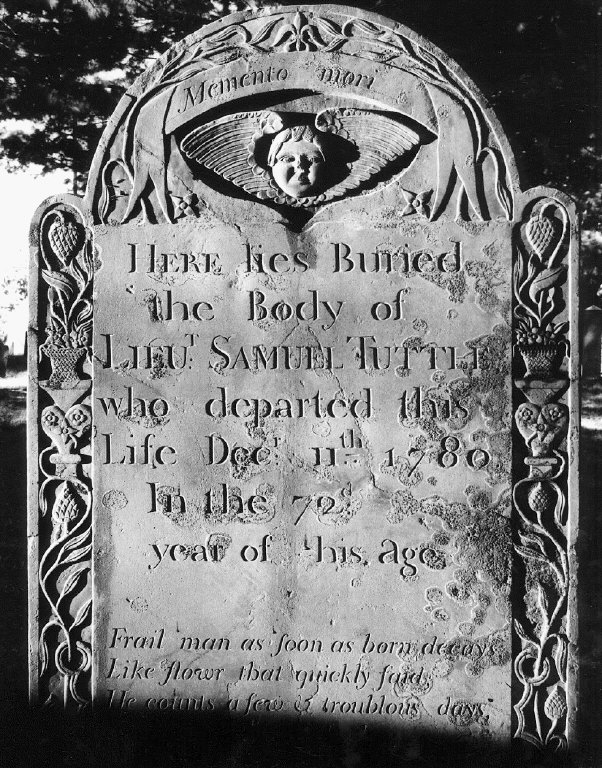 Memento mori
HERE lies Buried
the Body of
LIEUT. SAMUEL TUTTLE
who departed this
Life Decr. 11th. 1780
In the 72d.
year of his Age
Frail man as soon as born decays
Like flowr that quickly faids
He counts a few & troublous days,